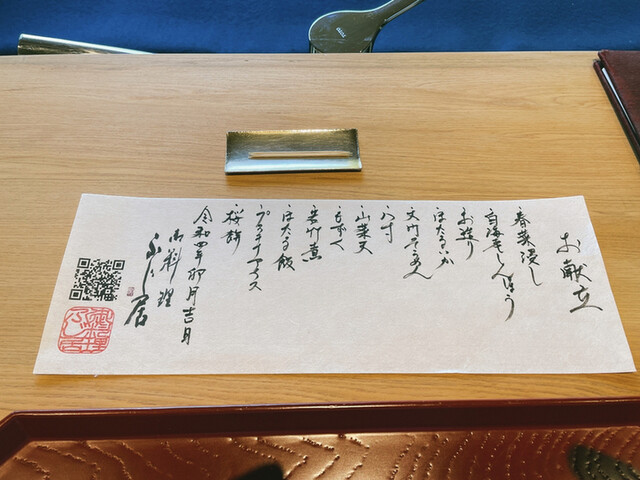 お献立
春菜浸し
白海老しんじょう
お造り
ほたるいか
大門そうめん
八寸
山菜天
もずく
若竹煮
ほたる飯
桜餅
令和四年卯月吉日
御料理
ふじ居